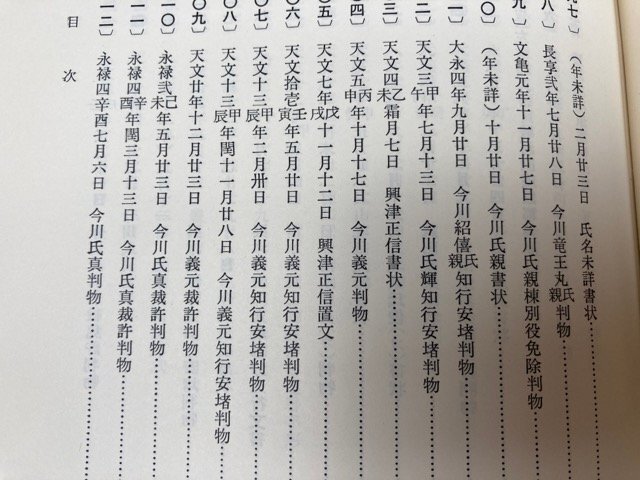 九七〕（年未詳）二月廿三日　氏名未詳書状……
八〕長享弐年七月廿八日　今川竜王丸氏親判物……
九〕文亀元年十一月廿七日　今川氏親棟別役免除判物……
〇〕（年未詳）十月廿日　今川氏親書状……
一〕大永四年九月廿日　今川紹僖氏親知行安堵判物……
二〕天文三甲午年七月十三日　今川氏輝知行安堵判物……
三〕天文四乙未霜月七日　興津正信書状……
四〕天文五丙申年十月十七日　今川義元判物……
〇五〕天文七年戊戌十一月十二日　興津正信置文……
〇六〕天文拾壱壬寅年五月廿日　今川義元知行安堵判物……
〇七〕天文十三甲辰年二月卅日　今川義元知行安堵判物……
〇八〕天文十三甲辰年閏十一月廿八日　今川義元知行安堵判物……
〇九〕天文廿年十二月廿三日　今川義元裁許判物……
一〇〕永禄弐己未年五月廿三日　今川氏真裁許判物……
一一〕永禄四辛酉年閏三月十三日　今川氏真裁許判物……
一二〕永禄四辛酉七月六日　今川氏真判物……
目　次